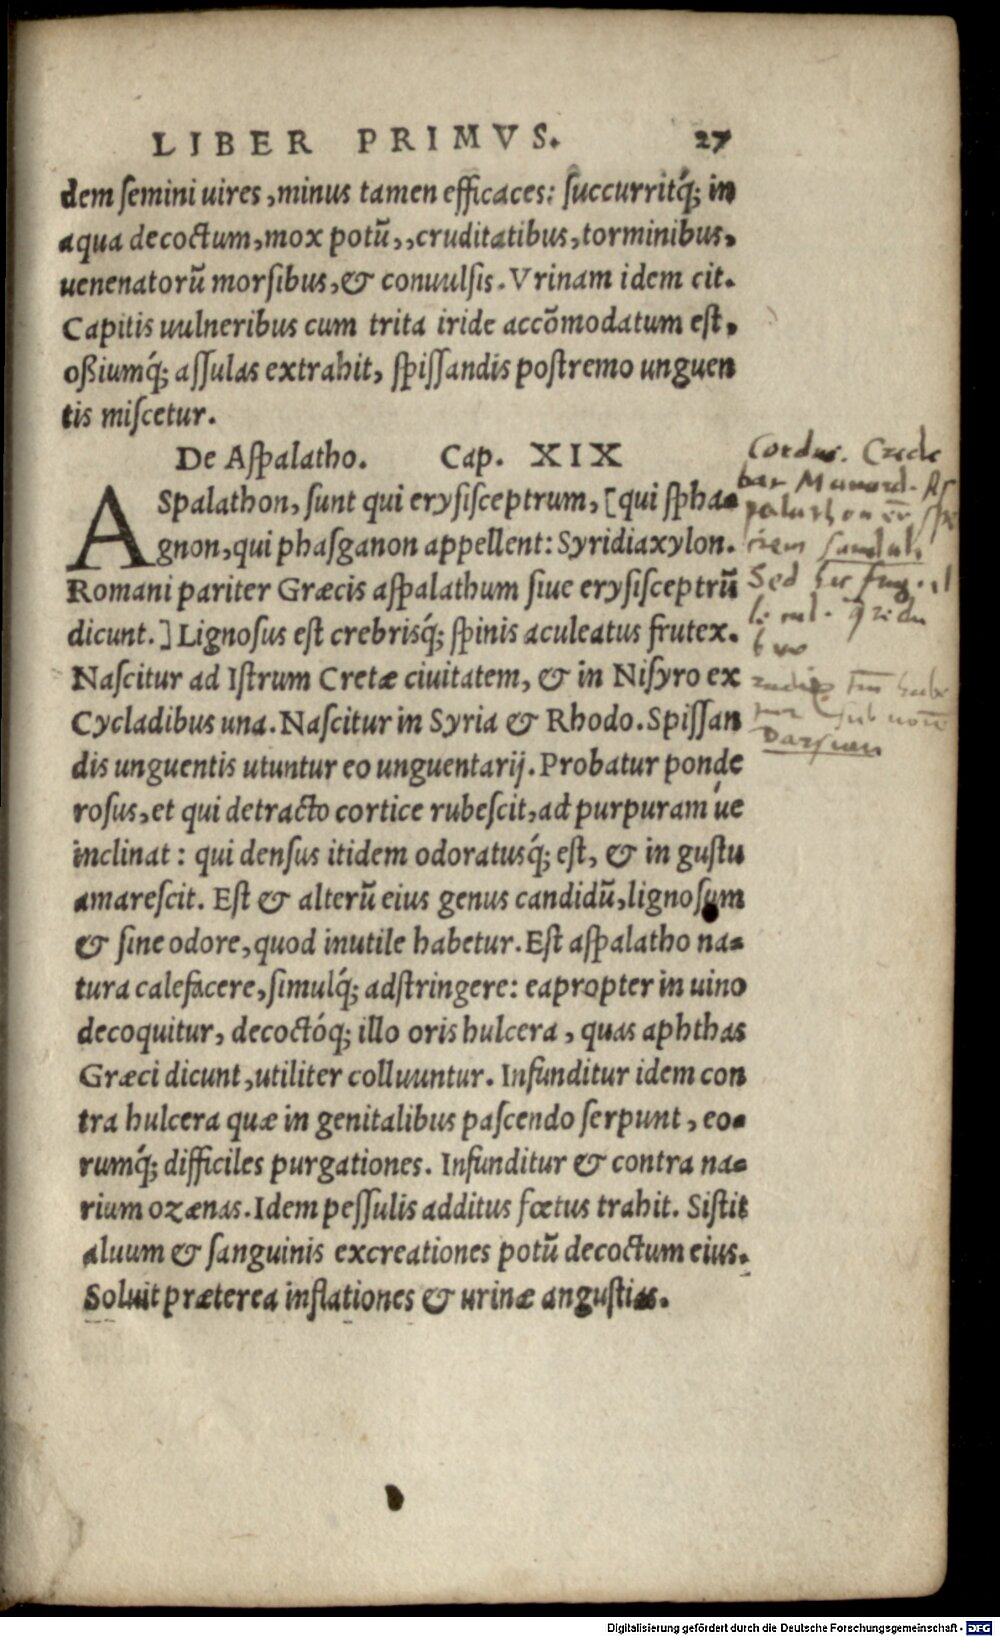 LIBER PRIMVS. 27
dem ſemini uires, minus tamen efficaces: ſuccurritq́; in
aqua decoctum, mox potũ,, cruditatibus, torminibus,
uenenatorũ morſibus, & conuulſis. Vrinam idem cit.
Capitis uulneribus cum trita iride accõmodatum eſt,
oßiumq́; aſſulas extrahit, ſpiſſandis poſtremo unguen
tis miſcetur.
De Aſpalatho. Cap. XIX
ASpalathon, ſunt qui eryſiſceptrum, [qui ſpha-
gnon, qui phaſganon appellent: Syridiaxylon.
Romani pariter Græcis aſpalathum ſiue eryſiſceptrũ
dicunt.] Lignoſus eſt crebrisq́; ſpinis aculeatus frutex.
Naſcitur ad Iſtrum Cretæ ciuitatem, & in Niſyro ex
Cycladibus una. Naſcitur in Syria & Rhodo. Spiſſan
dis unguentis utuntur eo unguentarij. Probatur ponde
roſus, et qui detracto cortice rubeſcit, ad purpuram úe
inclinat: qui denſus itidem odoratusq́; eſt, & in guſtu
amareſcit. Eſt & alterũ eius genus candidũ, lignoſum
& ſine odore, quod inutile habetur. Eſt aſpalatho na-
tura calefacere, ſimulq́; adſtringere: eapropter in uino
decoquitur, decoctóq; illo oris hulcera, quas aphthas
Græci dicunt, utiliter colluuntur. Infunditur idem con
tra hulcera quæ in genitalibus paſcendo ſerpunt, eo-
rumq́; difficiles purgationes. Infunditur & contra na-
rium ozænas. Idem peſſulis additus fœtus trahit. Siſtit
aluum & ſanguinis excreationes potũ decoctum eius.
Soluit præterea inflationes & urinæ anguſtias.
Cordus. Crede
bat Manard. Aſ
Sed
Digitalisierung gefördert durch die Deutsche Forschungsgemeinschaft - DFG